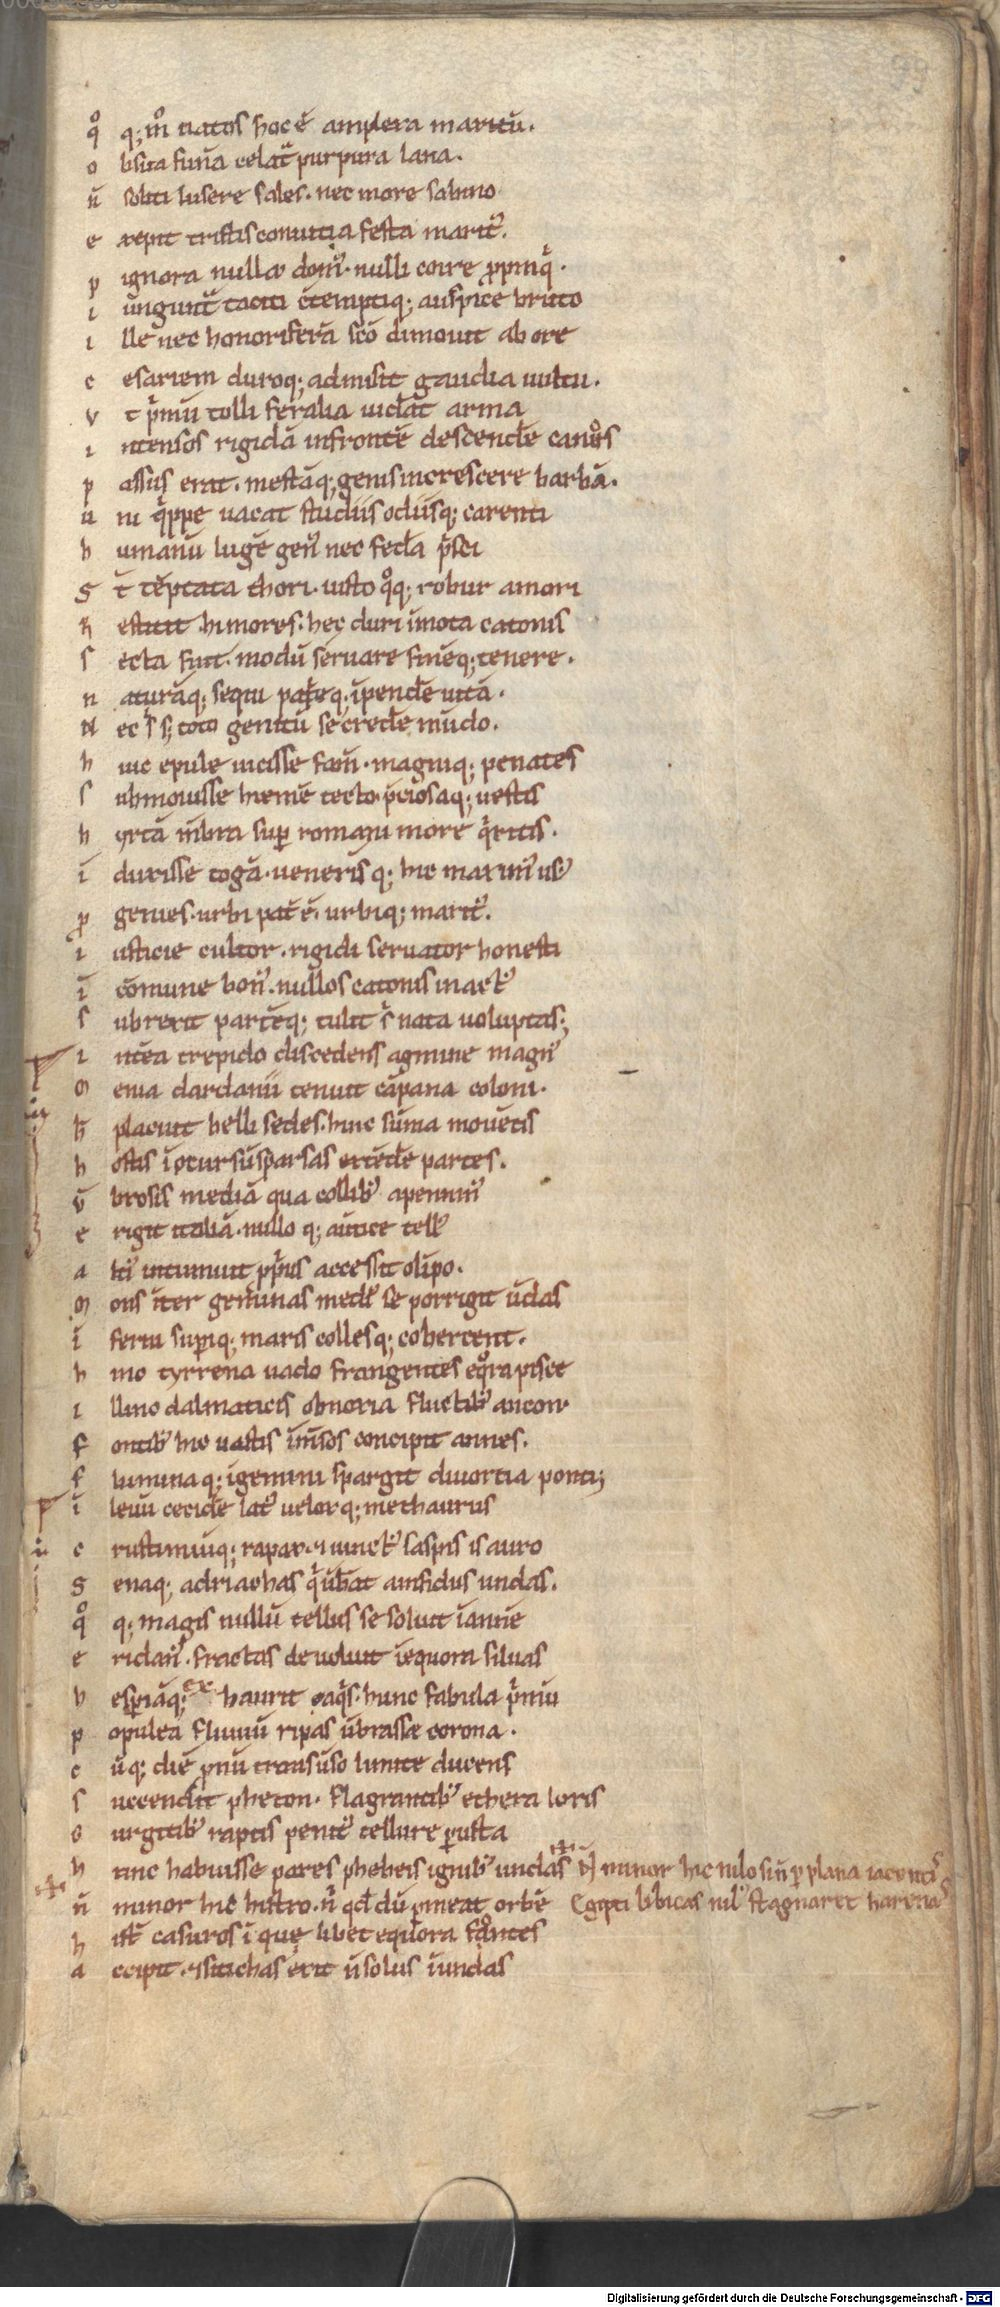 99
qͦ q; m̊ natos hoc ē amplexa maritū.
o bsita funa celat᷑ purpura lana.
n̄ soliti lusere sales. nec more sabino
e xepit tristis conuitia festa marit᷒.
p ignora nulla dom᷒. nulli coire ꝓpinq̇.
i ungunt᷑ taciti ɔtemptiq; auspice bruto
i lle nec honoriferā scō dimouit ab ore
c esariem duroq; admisit gaudia uultu.
v t ṗmū tolli feralia uiderat arma
i ntensos rigidā infrontē descendere canos
p assus erat. mestāq; genis increscere barbā.
u ni q̇ppe uacat studiis odiisq; carenti
h umanū lugē gen᷒ nec federa ṗsci
s t̄ tēptata thori. iusto qͦq; robur amori
R estitit. hi mores. hec duri īmota catonis
s ecta fuit. modū seruare finēq; tenere.
n aturāq; sequi patrieq; īpendere uitā.
N ec s s; toto genitū se credere mūdo.
h uic epule uicisse famē. magniq; penates
s ubmouisse hiemē tecto. p̄ciosaq; uestis
h yrtā mēbra suꝑ romani more q̇ritis.
i duxisse togā. ueneris q; hic maxim᷒ us᷒
ꝓ genies. urbi pat̄ ē. urbiq; marit᷒.
i usticie cultor. rigidi seruator honesti
ī cōmune bon᷒. nullos catonis in act᷒
s ubrexit partēq; tulit s nata uoluptas;
i nt̄ea trepido discedens agmine magn᷒
M enia dardanii tenuit cāpana coloni.
h̄ placuit belli sedes. hinc sūma mouētis
h ostis ī occursū sparsas extēdere partes.
v̄ brosis mediā qua collib᷒ apennin᷒
e rigit italiā. nullo q; a uertice tell᷒
a lti᷒ intumuit ꝓpi᷒s accessit olīpo.
M ons īter geminas medi᷒ se porrigit ūdas
ī feriu suꝑiq; maris collesq; cohercent.
h inc tyrrena uado frangentes eqͦra pise
i llinc dalmaticis obnoxia fluctib᷒ ancon.
f ontib᷒ hic uastis īm̄sos concipit amnes.
f lumina q; ī gemini spargit diuortia ponti;
ī leuū cecidere lat᷒ uelox q; methaurus
c rustimiūq; rapax. ⁊ iunct᷒ saspis isauro
s enaq; adriachas q̇ ūberat aufidus undas.
qͦ q; magis nullū tellus se soluit ī amnē
e ridan᷒. fractas deuoluit ī equora siluas
h esꝑiāq; ex haurit aq̇s. hunc fabula ṗmū
p opulea fluuiū ripas ūbrasse corona.
c ūq; diē ꝓnū transūso limite ducens
s uccendit pheton. flagrantib᷒ ethera loris
G urgitib᷒ raptis penit᷒ tellure ꝑusta
h unc habuisse pares phebeis ignib᷒ undas N̄ minor hic nilo si n̄ ꝑ plana iacentis
n̄ minor hic histro. n̄ qd̄ dū ꝑmeat orbē Egipti libicas nil᷒ stagnaret harenas
h ist̄ casuros ī quę libet equora fontes
a ccipit. ⁊ siticheas exit n̄ solus ī undas
Digitalisierung gefördert durch die Deutsche Forschungsgemeinschaft - DFG